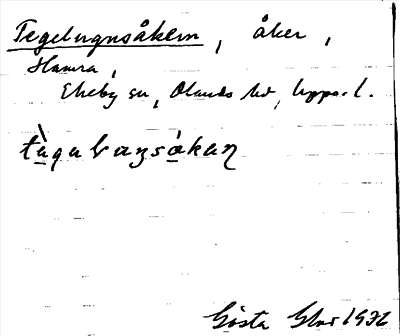 Tegelugnsåkern, åker,
Hamra,
Ekeby sn, Olands hd, Upps. l.
tègalvaŋsåkaɳ
Gösta 1932